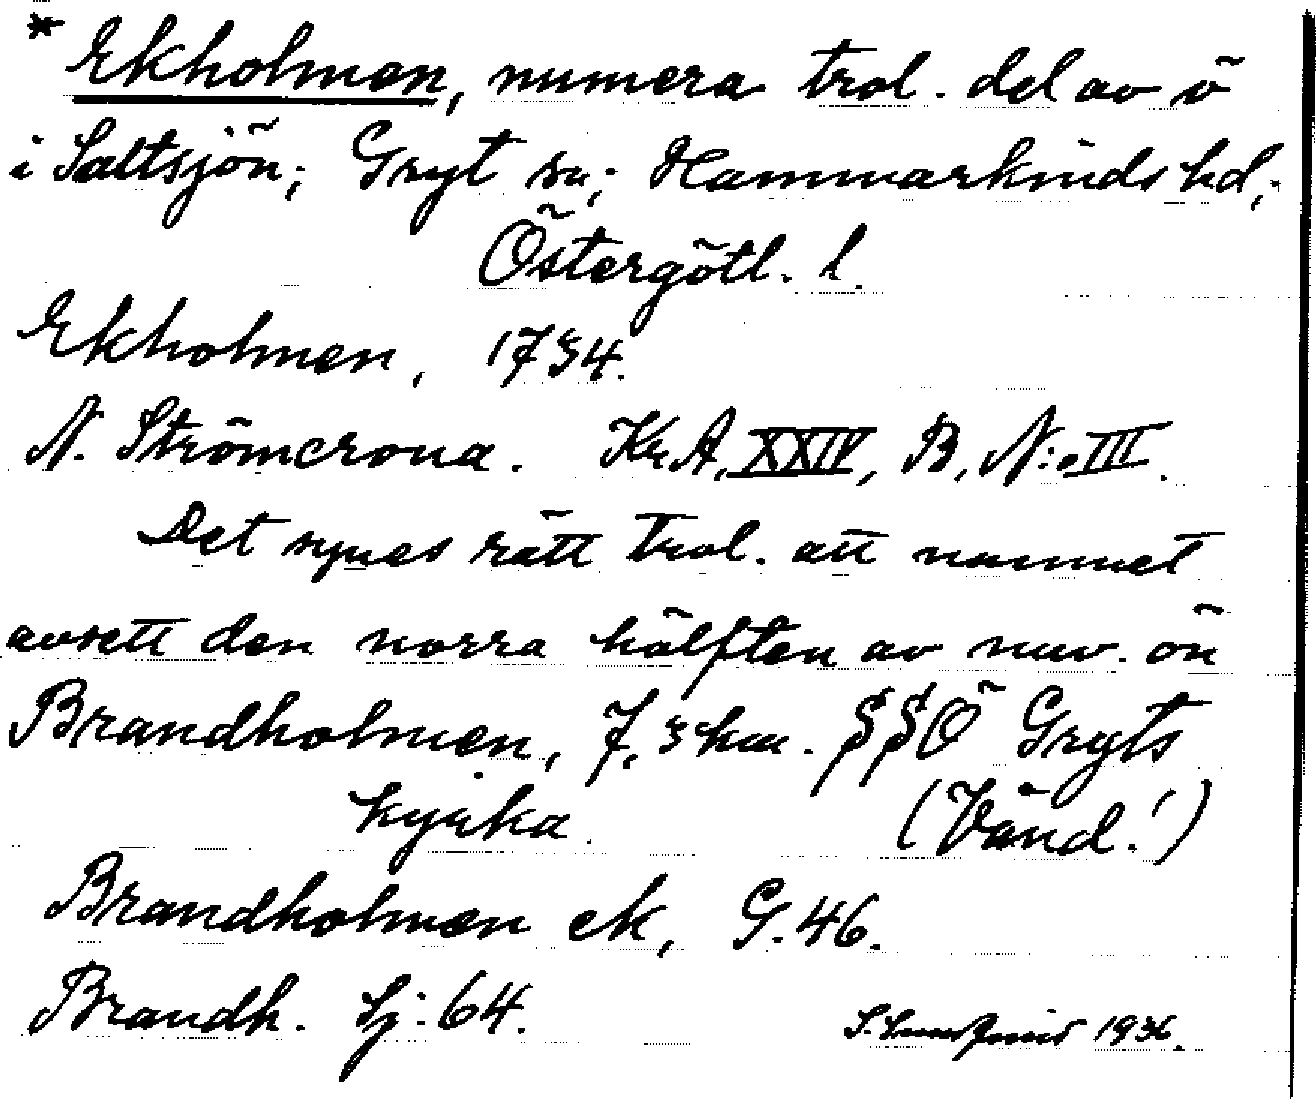 * Ekholmen, numera trol. del av ö
i Saltsjön; Gryt sn; Hammarkinds hd,;
Östergötl. l.
Ekholmen, 1734.
N. Strömcrona. Kr.A, XXIV, B, N:o III.
Det synes rätt trol. att namnet
avsett den norra hälften av nuv. ön
Brandholmen, 7,3 km. SSÖ Gryts
kyrka. (Vänd!)
Brandholmen ek, G. 46.
Brandh. Sj: 64.
S. 1936.